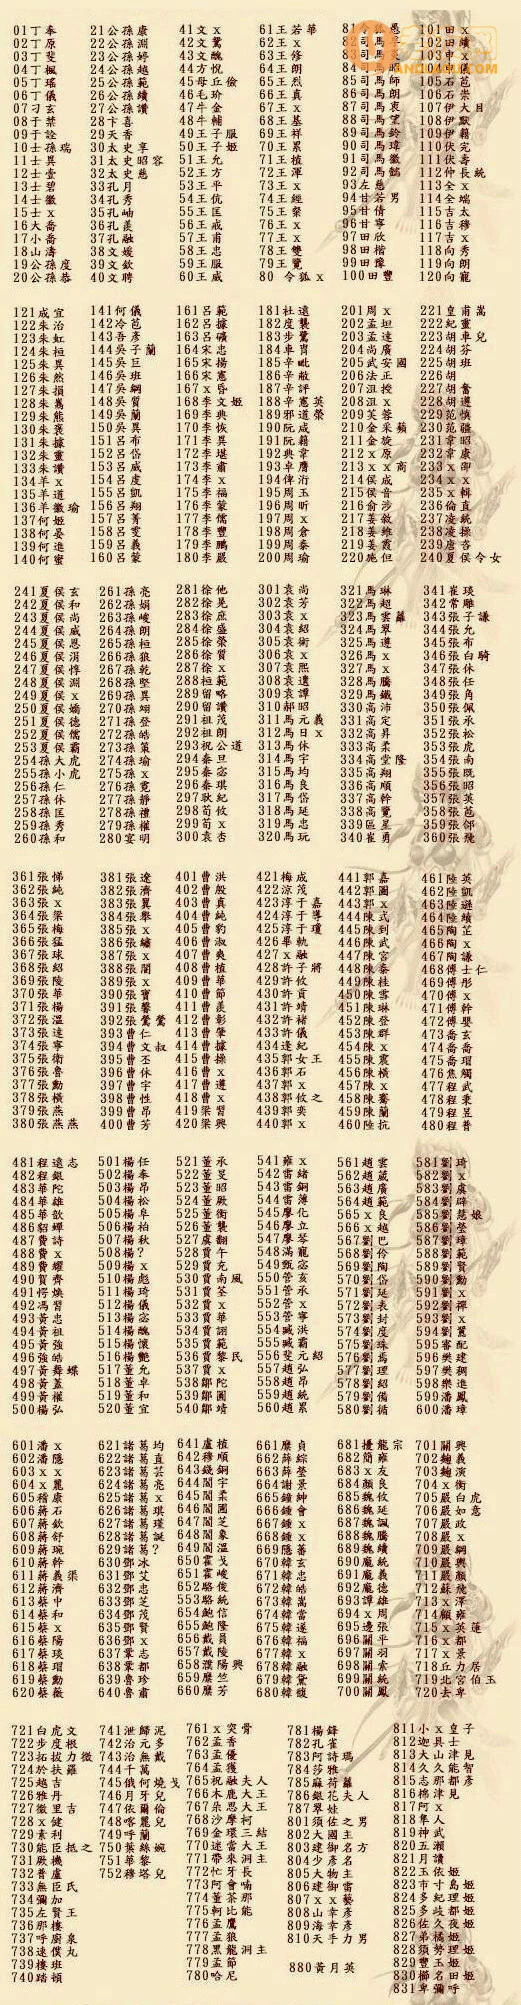 01丁奉
02丁原
03丁斐
04丁楓
05丁瑤
06丁儀
07刁玄
08于禁
09于詮
10士孫瑞
11士異
12士壹
13士碧
14士徽
15士x
16大喬
17小喬
18山濤
19公孫度
20公孫恭
21公孫康
22公孫淵
23公孫婷
24公孫越
25公孫範
26公孫續
27公孫讚
28卞喜
29天香
30太史享
31太史昭容
32太史慈
33孔月
34孔秀
35孔岫
36孔羨
37孔融
38文媛
39文欽
40文聘
41文x
42文鴦
43文醜
44方悅
45毋丘儉
46毛玠
47牛金
48牛輔
49王子服
50王子姬
51王允
52王方
53王平
54王伉
55王匡
56王戎
57王甫
58王忠
59王服
60王威
61王若華
62王x
63王修
64王朗
65王烈
66王真
67王x
68王基
69王祥
70王累
71王植
72王渾
73王x
74王經
75王粲
76王x
77王x
78王雙
79王覽
80 令狐x
81令狐愚
82司馬孚
84司馬昭
85司馬師
86司馬朗
87司馬衷
88司馬望
89司馬鈴
90司馬瑋
91司馬徽
92司馬懿
93左慈
94甘若男
95甘倩
96甘寧
97田欣
98田楷
99田豫
100田豐
101田x
102田續
103申x
104申儀
105石苞
106石崇
107伊大目
108伊默
109伊籍
110伏完
111伏壽
112仲長統
113全x
114全端
115吉太
116吉穆
117吉x
118向秀
119向朗
120向寵
121成宜
122朱治
123朱虹
124朱桓
125朱異
126朱然
127朱損
128朱雋
129朱熊
130朱褒
131朱據
132朱靈
133朱讚
134羊x
135羊道
136羊徽瑜
137何姬
138何晏
139何進
140何蜜
141何儀
142冷苞
143吾彥
144吳子蘭
145吳巨
146吳班
147吳綱
148吳質
149吳蘭
150吳異
151呂布
152呂岱
153呂威
154呂虔
155呂凱
156呂翔
157呂菁
158呂雯
159呂義
160呂蒙
161呂範
162呂據
163呂曠
164宋忠
165宋揚
166宋憲
167x昏
168李文姬
169李典
170李恢
171李異
172李堪
173李肅
174李x
175李福
176李蒙
177李儒
178李豐
179李鵬
180李嚴
181杜遠
182度襲
183步騭
184車胄
185辛毗
186辛敞
187辛評
188辛憲英
189邪道榮
190阮咸
191阮籍
192典韋
193卓膺
194俾衎
195周玉
196周昕
197周x
198周倉
199周泰
200周瑜
201周x
202孟坦
203孟達
204尚廣
205武安國
206法正
207沮授
208沮x
209芙蓉
210金采蘋
211金旋
212x原
213xx商
214侯成
215侯音
216俞涉
217姜敘
218姜維
219姜霞
220施但
221皇甫嵩
222紀靈
223胡車兒
224胡芬
225胡班
226胡
227胡奮
228胡遵
229范慎
230范疆
231韋昭
232韋康
233x卻
234xx
235x輯
236倫直
237凌統
238凌操
239唐咨
240夏侯令女
241夏侯玄
242夏侯和
243夏侯尚
244夏侯威
245夏侯恩
246夏侯涓
247夏侯惇
248夏侯淵
249夏侯x
250夏侯嬌
251夏侯德
252夏侯儒
253夏侯霸
254孫大虎
255孫小虎
256孫仁
257孫休
258孫匡
259孫秀
260孫和
261孫亮
262孫娟
263孫峻
264孫朗
265孫桓
266孫狼
267孫乾
268孫堅
269孫異
270孫翊
271孫登
272孫皓
273孫策
274孫瑜
275孫x
276孫冕
277孫靜
278孫禮
279孫權
280宴明
281徐他
282徐晃
283徐庶
284徐盛
285徐榮
286徐質
287徐x
288桓範
289留略
290留讚
291祖茂
292祖朗
293祝公道
294秦旦
295秦宓
296秦琪
297耿紀
298荀攸
299荀x
300袁杏
301袁尚
302袁芳
303袁x
304袁紹
305袁術
306袁x
307袁熙
308袁遺
309袁譚
310郝昭
311馬元義
312馬日x
313馬休
314馬宇
315馬均
316馬良
317馬岱
318馬延
319馬忠
320馬玩
321馬琳
322馬超
323馬雲蘿
324馬翠
325馬遵
326馬x
327馬x
328馬騰
329馬鐵
330高沛
331高定
332高昇
333高柔
334高堂隆
335高翔
336高順
337高幹
338高覽
339區星
340崔勇
341崔琰
342常雕
343張子謙
344張允
345張布
346張白騎
347張休
348張任
349張角
350張佩
351張承
352張松
353張虎
354張南
355張既
356張昭
357張英
358張苞
359張郃
360張飛
361張悌
362張純
363張x
364張梁
365張梅
366張猛
367張球
368張紹
369張陵
370張華
371張楊
372張溫
373張達
374張寧
375張衛
376張魯
377張勳
378張橫
379張燕
380張燕燕
381張遼
382張濟
383張翼
384張舉
385張x
386張繡
387張x
388張闓
389張x
390張寶
391張馨
392張鶯鶯
393曹仁
394曹文叔
395曹丕
396曹休
397曹宇
398曹性
399曹昂
400曹芳
401曹洪
402曹殷
403曹真
404曹純
405曹豹
406曹淑
407曹爽
408曹植
409曹華
410曹節
411曹羨
412曹彰
413曹肇
414曹據
415曹操
416曹x
417曹遵
418曹x
419梁習
420梁興
421梅成
422涼茂
423淳于嘉
424淳于導
425淳于瓊
426畢軌
427x融
428許子將
429許攸
430許貢
431許靖
432許褚
433許儀
434逢紀
435郭女王
436郭石
437郭x
438郭攸之
439郭奕
440郭x
441郭嘉
442郭圖
443郭x
444陳式
445陳到
446陳武
447陳宮
448陳泰
449陳桂
450陳雪
451陳琳
452陳登
453陳群
454陳x
455陳震
456陳橫
457陳x
458陳騫
459陳蘭
460陸抗
461陸英
462陸凱
463陸遜
464陸績
465陶芷
466陶x
467陶謙
468傅士仁
469傅彤
470傅x
471傅幹
472傅嬰
473喬玄
474喬喬
475喬瑁
476焦觸
477程武
478程秉
479程昱
480程普
481程遠志
482程銀
483華陀
484華雄
485華歆
486貂蟬
487費詩
488費x
489費耀
490賀齊
491愕煥
492馮習
493黃忠
494黃祖
495黃強
496強皓
497黃舞蝶
498黃蓋
499黃權
500楊弘
501楊任
502楊奉
503楊昂
504楊松
505楊阜
506楊柏
507楊秋
508楊?
509楊x
510楊彪
511楊琦
512楊儀
513楊宓
514楊醜
515楊懷
516楊艷
517董允
518董卓
519董和
520董宜
521董承
522董旻
523董昭
524董厥
525董衡
526董襲
527虞翻
528賈午
529賈充
530賈南風
531賈荃
532賈x
533賈華
534賈詡
535賈範
536賈黎民
537賈x
538鄒陀
539鄒圖
540鄒靖
541雍x
542雷緒
543雷銅
544雷薄
545廖化
546廖立
547廖琴
548滿寵
549甄宓
550管亥
551管承
552管x
553管寧
554臧洪
555臧霸
556斐元紹
557趙弘
558趙昂
559趙統
560趙累
561趙雲
562趙葳
563趙廣
564趙範
565x良
566x越
567劉巴
568劉伶
569劉陶
570劉岱
571劉延
572劉表
573劉封
574劉度
575劉珠
576劉焉
577劉理
578劉紹
579劉備
580劉循
581劉琦
582劉x
583劉虞
584劉辟
585劉慧娘
586劉瑩
587劉璋
588劉範
589劉賢
590劉勳
591劉x
592劉禪
593劉x
594劉鷺
595審配
596樊建
597樊稠
598樂進
599潘鳳
600潘璋
601潘x
602潘隱
603xx
604x麗
605稽康
606蔣石
607蔣欽
608蔣舒
609蔣琬
610蔣幹
611蔣義渠
612蔣濟
613蔡中
614蔡和
615蔡x
616蔡陽
617蔡琰
618蔡瑁
619蔡勳
620蔡薇
621諸葛均
622諸葛直
623諸葛芸
624諸葛亮
625諸葛x
626諸葛琪
627諸葛瑾
628諸葛誕
629諸葛?
630鄧冰
631鄧艾
632鄧忠
633鄧芝
634鄧茂
635鄧賢
636鄧x
637鞏志
638鞏都
639魯珍
640魯肅
641盧植
642穆順
643錢銅
644閻宇
645閻柔
646閻圃
647閻芝
648閻象
649閻溫
650霍戈
651霍峻
652駱俊
653駱統
654鮑信
655鮑隆
656戴員
657戴陵
658濮陽興
659糜竺
660糜芳
661糜貞
662薛綜
663薛瑩
664謝景
665鍾紳
666鍾會
667鍾x
668鍾x
669隱蕃
670韓玄
671韓忠
672韓皓
673韓嵩
674韓當
675韓遂
676韓福
677韓x
678韓融
679韓黛
680韓馥
681擾龍宗
682簡雍
683x友
684顏良
685魏攸
686魏延
687魏諷
688魏騰
689魏續
690龐統
691龐義
692龐德
693譚雄
694x周
695邊張
696關平
697關羽
698關索
699關統
700關鳳
701關興
702麴義
703麴演
704x衡
705嚴白虎
706嚴如意
707嚴政
708嚴x
709嚴綱
710嚴興
711嚴顏
712蘇飛
713x澤
714顧雍
715x英蓮
716x都
717x景
718丘力居
719北宮伯玉
720去卑
721白虎文
722步度根
723拓拔力微
724於扶羅
725越吉
726雅丹
727徹里吉
728x健
729素利
730能臣抵之
731厥機
732普盧
733無臣氏
734彌加
735左賢王
736那樓
737呼廚泉
738速僕丸
739樓班
740踏頓
741泄歸泥
742治元多
743治無戴
744千萬
745俄何燒戈
746月牙兒
747依爾倫
748喀麗兒
749呼蘭
750葉絲婉
751華黎
752穆塔兒
761x突骨
762孟香
763孟優
764孟獲
765祝融夫人
766木鹿大王
767朵思大王
768沙摩柯
769金環三結
770迷當大王
771帶來洞主
772忙牙長
773阿會喃
774董荼那
775軻比能
776孟鷹
777孟狼
778黑龍洞主
779孟節
780哈尼
781楊鋒
782孔雀
783阿詩瑪
784莎雅
785麻荷蘿
786銀花夫人
787翠娃
801須佐之男
802大國主
803建御名方
804少彥名
805大物主
806建御雷
807xx藝
808山幸彥
809海幸彥
810天手力男
880黃月英
811小x皇子
812迦具士
813大山津見
814久久能智
815志那都彥
816棉津見
817阿x
818隼人
819神武
820五瀨
821月讀
822玉依姬
823市寸島姬
824多紀理姬
825多歧都姬
826佐久夜姬
827弟橘姬
828須勢理姬
829豐玉姬
830櫛名田姬
831卑彌呼